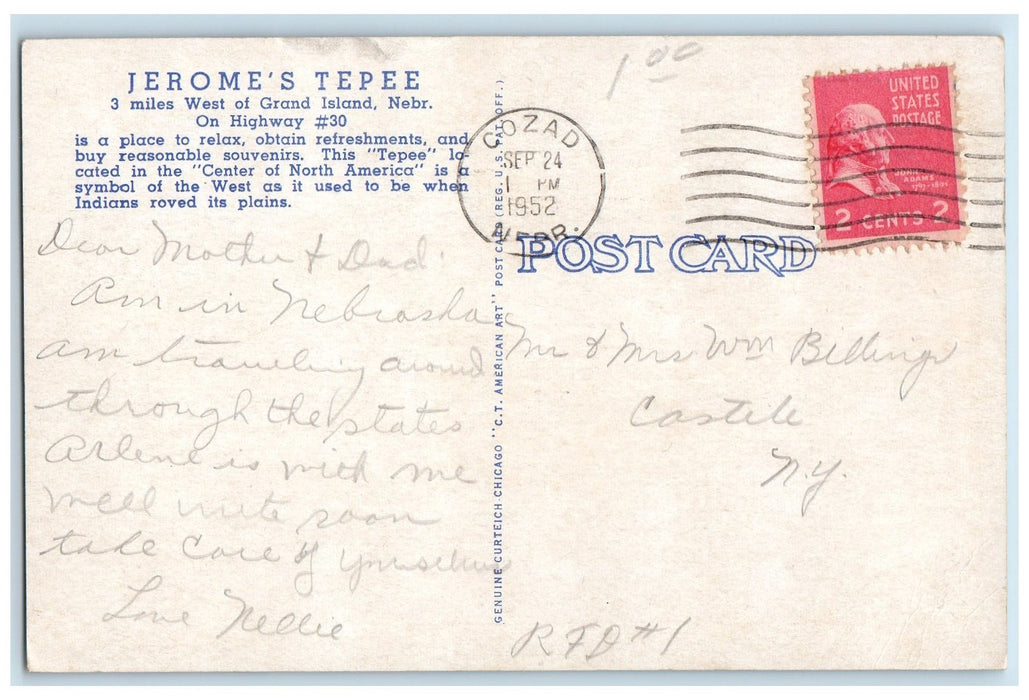 JEROME'S TEPEE
3 miles West of Grand Island, Nebr.
On Highway #30
is a place to relax, obtain refreshments, and
buy reasonable souvenirs. This "Tepee" lo-
cated in the "Center of North America" is a
symbol of the West as it used to be when
Indians roved its plains.
Dear Mother & Dad.
Am in Nebraska
am traveling around
through the states
Arlene is with me
well write soon
take care of yourselves
Love Nellie
GENUINE CURTEICH-CHICAGO "C.T. AMERICAN ART" POST CARD (REG. U.S. PAT. OFF.)
1.00
COZAD
SEP 24
1 PM
1952
NEBR.
UNITED
STATES
POSTAGE
ADAMS
2 CENTS 2
POST CARD
Mr & Mrs Wm Billings
Castile
N.Y.
RFD #1